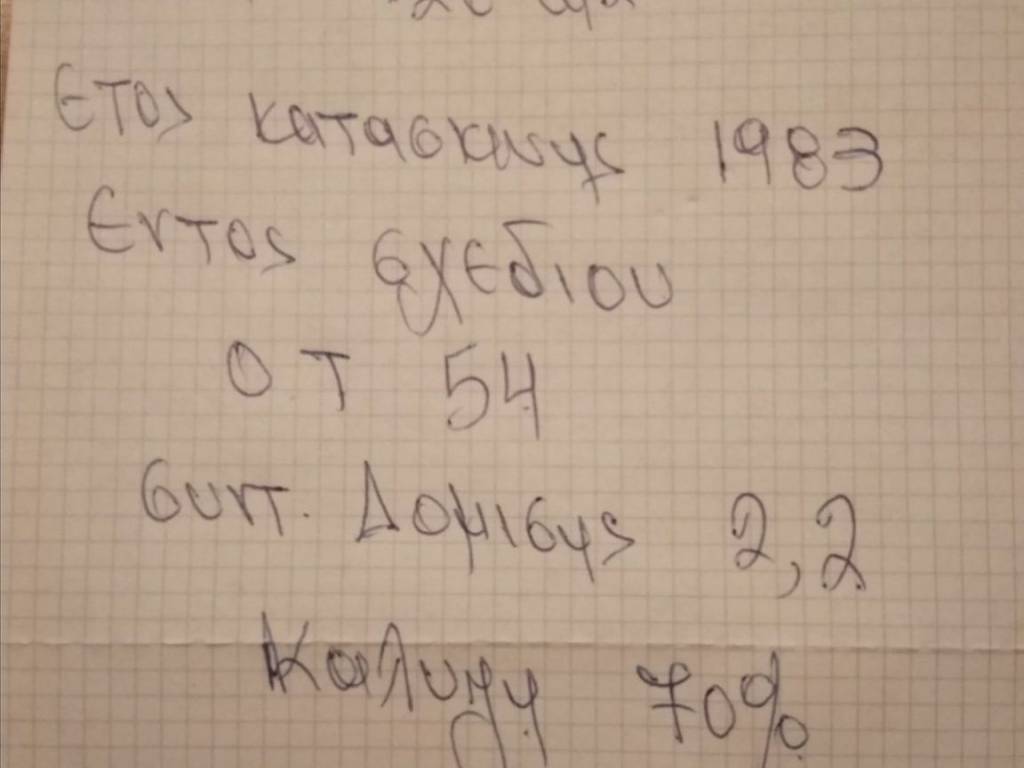 Ετος κατασκυης 1983
Εντος σχεδιου
Ο Τ 54
συντ. Δομισης 2,2
Καλυψη 70%